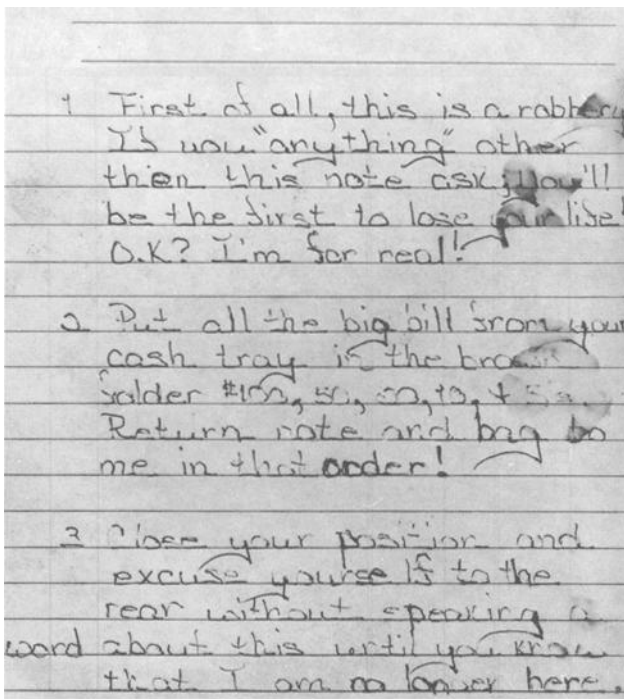 1 First of all, this is a robbery
If you "anything" other
then this note ask, you'll
be the first to lose your life!
O.K? I'm for real!
2 Put all the big bill from your
cash tray in the brown
folder $100, 50, 20, 10, + 5s.
Return note and bag to
me in that order!
3 Close your position and
excuse yourself to the
rear without speaking a
word about this until you know
that I am no longer here.